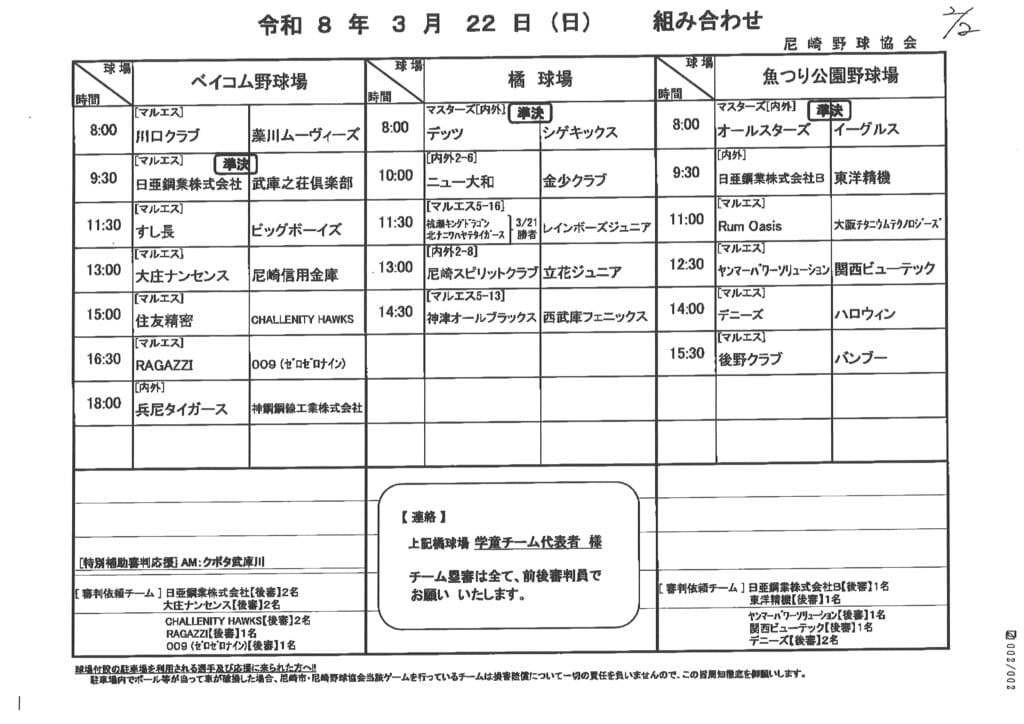 令和 8 年 3 月 22 日（日） 組み合わせ
2/2
尼崎野球協会
球場
時間
ベイコム野球場
球場
時間
橘 球場
球場
時間
魚つり公園野球場
8:00
[マルエス]
川口クラブ
藻川ムーヴィーズ
9:30
[マルエス]
準決
日亜鋼業株式会社
武庫之荘倶楽部
11:30
[マルエス]
すし長
ビッグボーイズ
13:00
[マルエス]
大庄ナンセンス
尼崎信用金庫
15:00
[マルエス]
住友精密
CHALLENITY HAWKS
16:30
[マルエス]
RAGAZZI
009（ｾﾞﾛｾﾞﾛﾅｲﾝ）
18:00
[内外]
兵尼タイガース
神鋼鋼線工業株式会社
8:00
マスターズ[内外]
準決
デッツ
シゲキックス
10:00
[内外2-6]
ニュー大和
金少クラブ
11:30
[マルエス5-16]
杭瀬キングドラゴン
北ナニワハヤテタイガース
3/21
勝者
レインボーズジュニア
13:00
[内外2-8]
尼崎スピリットクラブ
立花ジュニア
14:30
[マルエス5-13]
神津オールブラックス
西武庫フェニックス
8:00
マスターズ[内外]
準決
オールスターズ
イーグルス
9:30
[内外]
日亜鋼業株式会社B
東洋精機
11:00
[マルエス]
Rum Oasis
大阪ﾁﾀﾆｳﾑﾃｸﾉﾛｼﾞｰｽﾞ
12:30
[マルエス]
ﾔﾝﾏｰﾊﾟﾜｰｿﾘｭｰｼｮﾝ
関西ビューテック
14:00
[マルエス]
デニーズ
ハロウィン
15:30
[マルエス]
後野クラブ
バンブー
[特別補助審判応援] AM：クボタ武庫川
[ 審判依頼チーム ] 日亜鋼業株式会社【後審】2名
大庄ナンセンス【後審】2名
CHALLENITY HAWKS【後審】2名
RAGAZZI【後審】1名
009（ｾﾞﾛｾﾞﾛﾅｲﾝ）【後審】1名
【 連絡 】
上記橘球場 学童チーム代表者 様
チーム塁審は全て、前後審判員で
お願い いたします。
[ 審判依頼チーム ] 日亜鋼業株式会社B【後審】1名
東洋精機【後審】1名
ﾔﾝﾏｰﾊﾟﾜｰｿﾘｭｰｼｮﾝ【後審】1名
関西ビューテック【後審】1名
デニーズ【後審】2名
球場付設の駐車場を利用される選手及び応援に来られた方へ!!
駐車場内でボール等が当って車が破損した場合、尼崎市・尼崎野球協会当該ゲームを行っているチームは損害賠償について一切の責任を負いませんので、この旨周知徹底を御願いします。
002/002